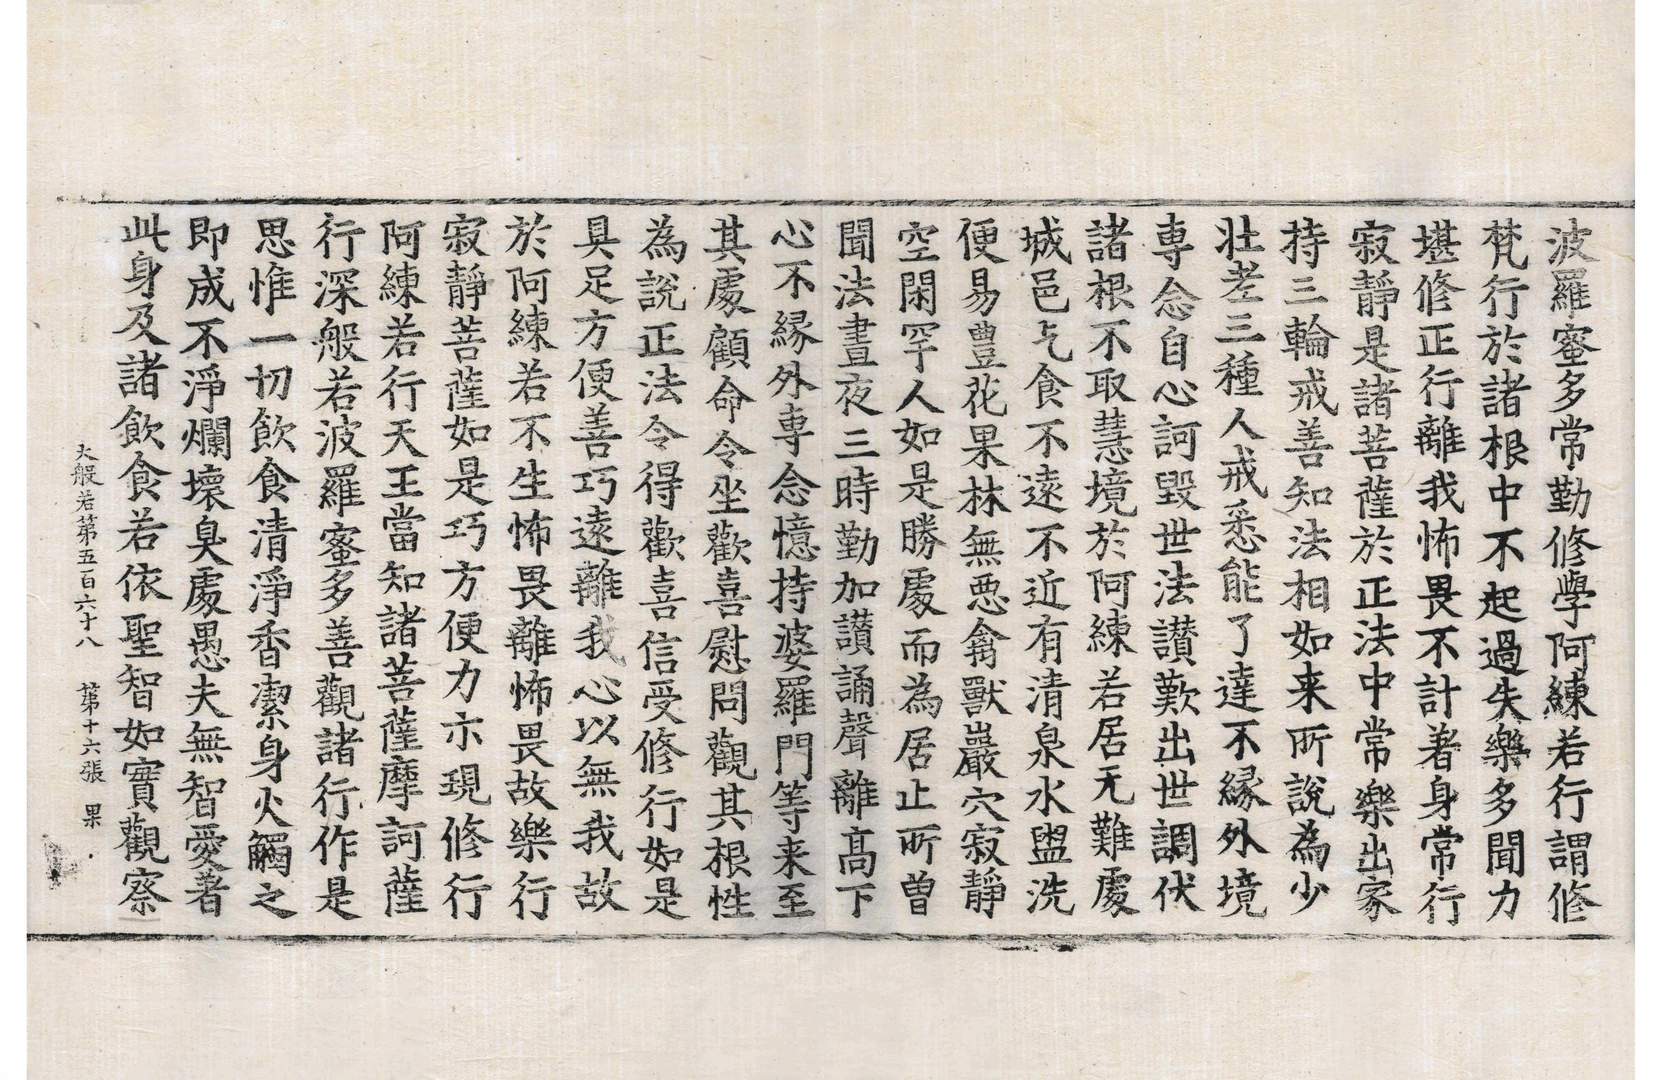 波羅蜜多常勤修學阿練若行謂修
梵行於諸根中不起過失樂多聞力
堪修正行離我怖畏不計著身常行
寂靜是諸菩薩於正法中常樂出家
持三輪戒善知法相如来所說為少
壮老三種人戒悉能了達不緣外境
専念自心訶毀世法讃歎出世調伏
諸根不取慧境於阿練若居无難處
城邑乞食不遠不近有清泉水盥洗
便易豊花果林無惡禽獸巖穴寂靜
空閑罕人如是勝處而為居止所曽
聞法晝夜三時勤加讃誦聲離髙下
心不緣外専念憶持婆羅門等来至
其處顧命令坐歡喜慰問觀其根性
為說正法令得歡喜信受修行如是
具足方便善巧遠離我心以無我故
於阿練若不生怖畏離怖畏故樂行
寂靜菩薩如是巧方便力示現修行
阿練若行天王當知諸菩薩摩訶薩
行深般若波羅蜜多善觀諸行作是
思惟一切飲食清淨香潔身火觸之
即成不淨爛壞臭處愚夫無智愛著
此身及諸飲食若依聖智如實觀察
大般若第五百六十八　第十六張　果